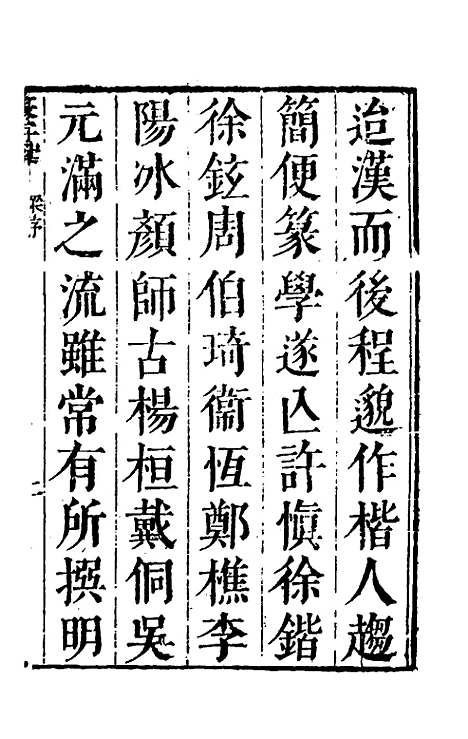 迨漢而後程邈作楷人趨
簡便篆學遂亾許愼徐鍇
徐鉉周伯琦衞恆鄭樵李
陽冰顏師古楊桓戴侗吳
元滿之流雖常有所撰明
梁序
二